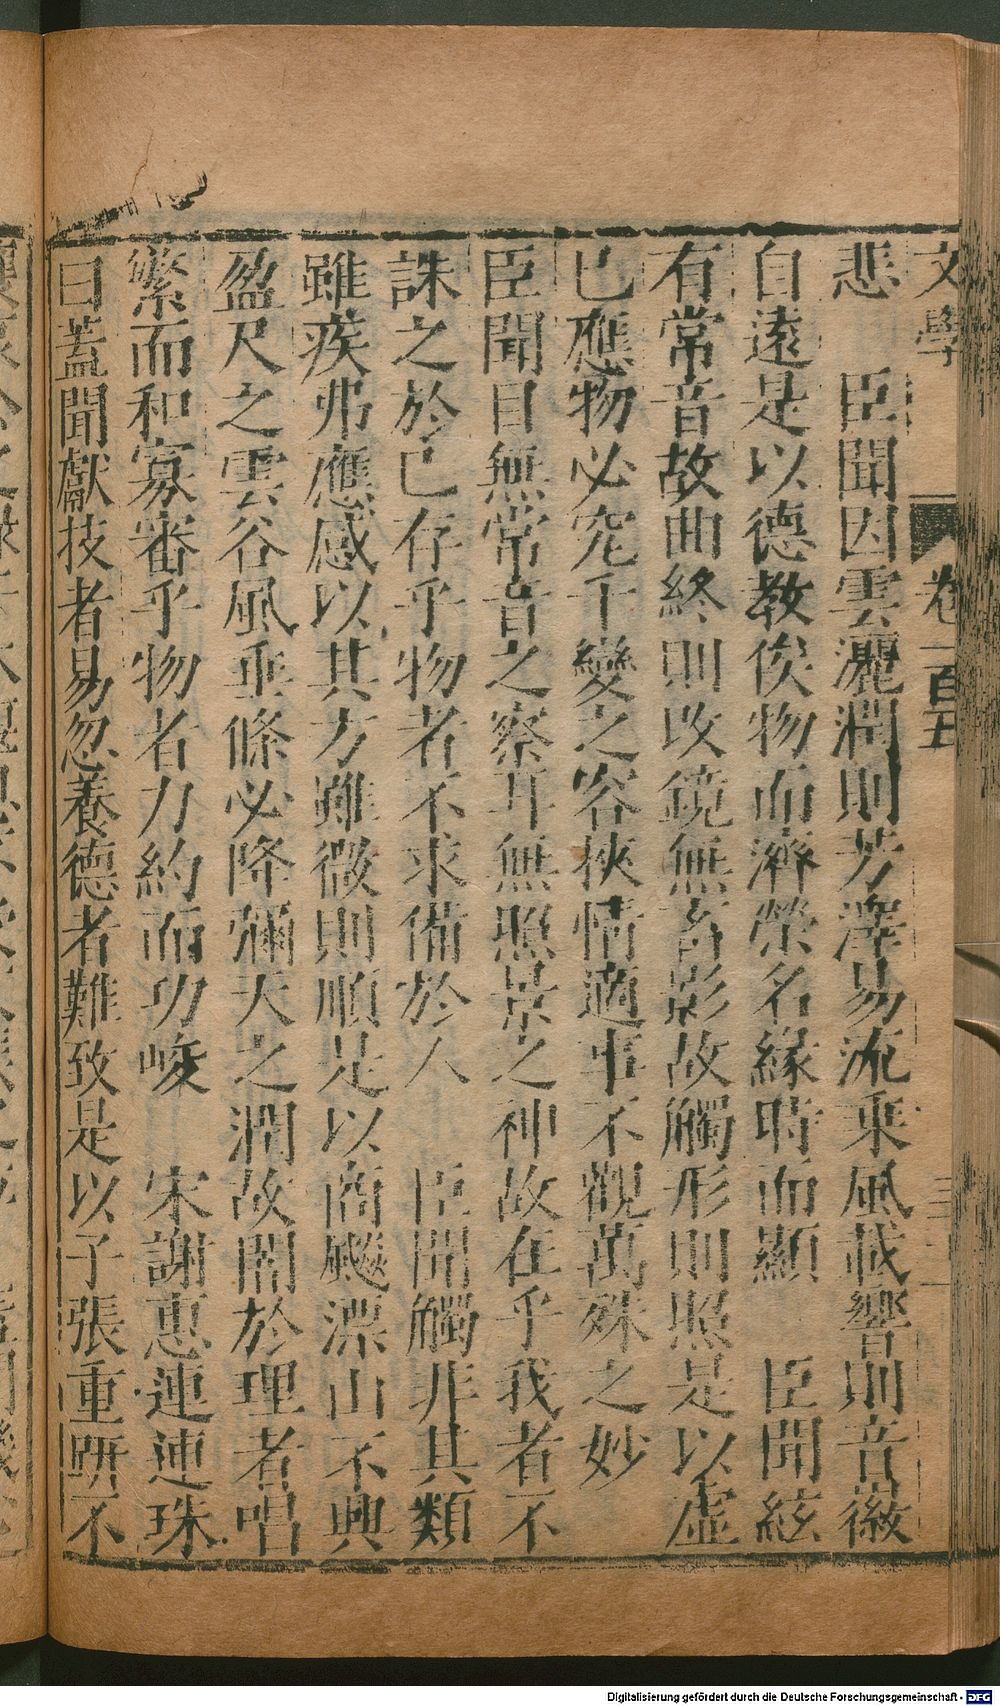 文學 卷一百五
悲 臣聞因雲灑潤則芳澤易流乘風載響則音徽
自遠是以德教俟物而濟榮名緣時而顯 臣聞絃
有常音故曲終則改鏡無畜影故觸形則照是以虛
已應物必究千變之容挾情適事不觀萬殊之妙
臣聞目無常音之察耳無照景之神故在乎我者不
誅之於已存乎物者不求備於人 臣聞觸非其類
雖疾弗應感以其方雖微則順是以商飈漂山不興
盈尺之雲谷風乘條必降彌天之潤故闇於理者唱
繁而和寡審乎物者力約而功峻 宋謝惠連連珠
曰蓋聞獻技者易忽養德者難致是以子張重趼不
Digitalisierung gefördert durch die Deutsche Forschungsgemeinschaft - DFG